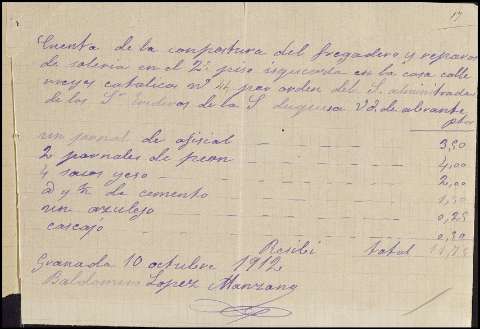 17
Cuenta de la conpostura del fregadero y reparos
de soleria en el 2º piso isquierda en la casa calle
reyes catolicos nº 44 por orden del S. alministrador
de los Sres de la S. duquesa Vda de abrante
ptas
un jornal de ofisial 3,50
2 jornales de peon 4,00
4 sacos yeso 2,00
@ y ½ de cemento 1,50
un azulejo 0,25
cascajo 0,50
Recibi total 11,75
Granada 10 octubre 1912
Baldomero Lopez Manzano